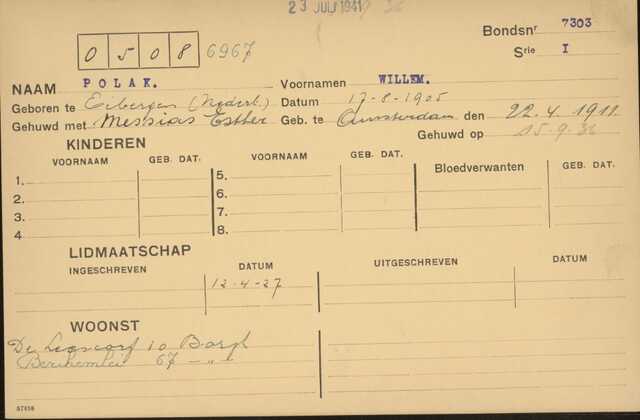 23 JULI 1941
0508 6967
Bondsnr 7303
Srie I
NAAM POLAK. Voornamen WILLEM.
Geboren te Eibergen (Nederl.) Datum 17-8-1905
Gehuwd met Messias Esther Geb. te Amsterdam den 22.4.1911
Gehuwd op 15.9.36
KINDEREN
VOORNAAM GEB. DAT. VOORNAAM GEB. DAT. Bloedverwanten GEB. DAT.
1. 5.
2. 6.
3. 7.
4 8.
LIDMAATSCHAP
INGESCHREVEN DATUM UITGESCHREVEN DATUM
12-4-27
WOONST
De 10 Borgh
Berchemlei 67 - „ -
57656